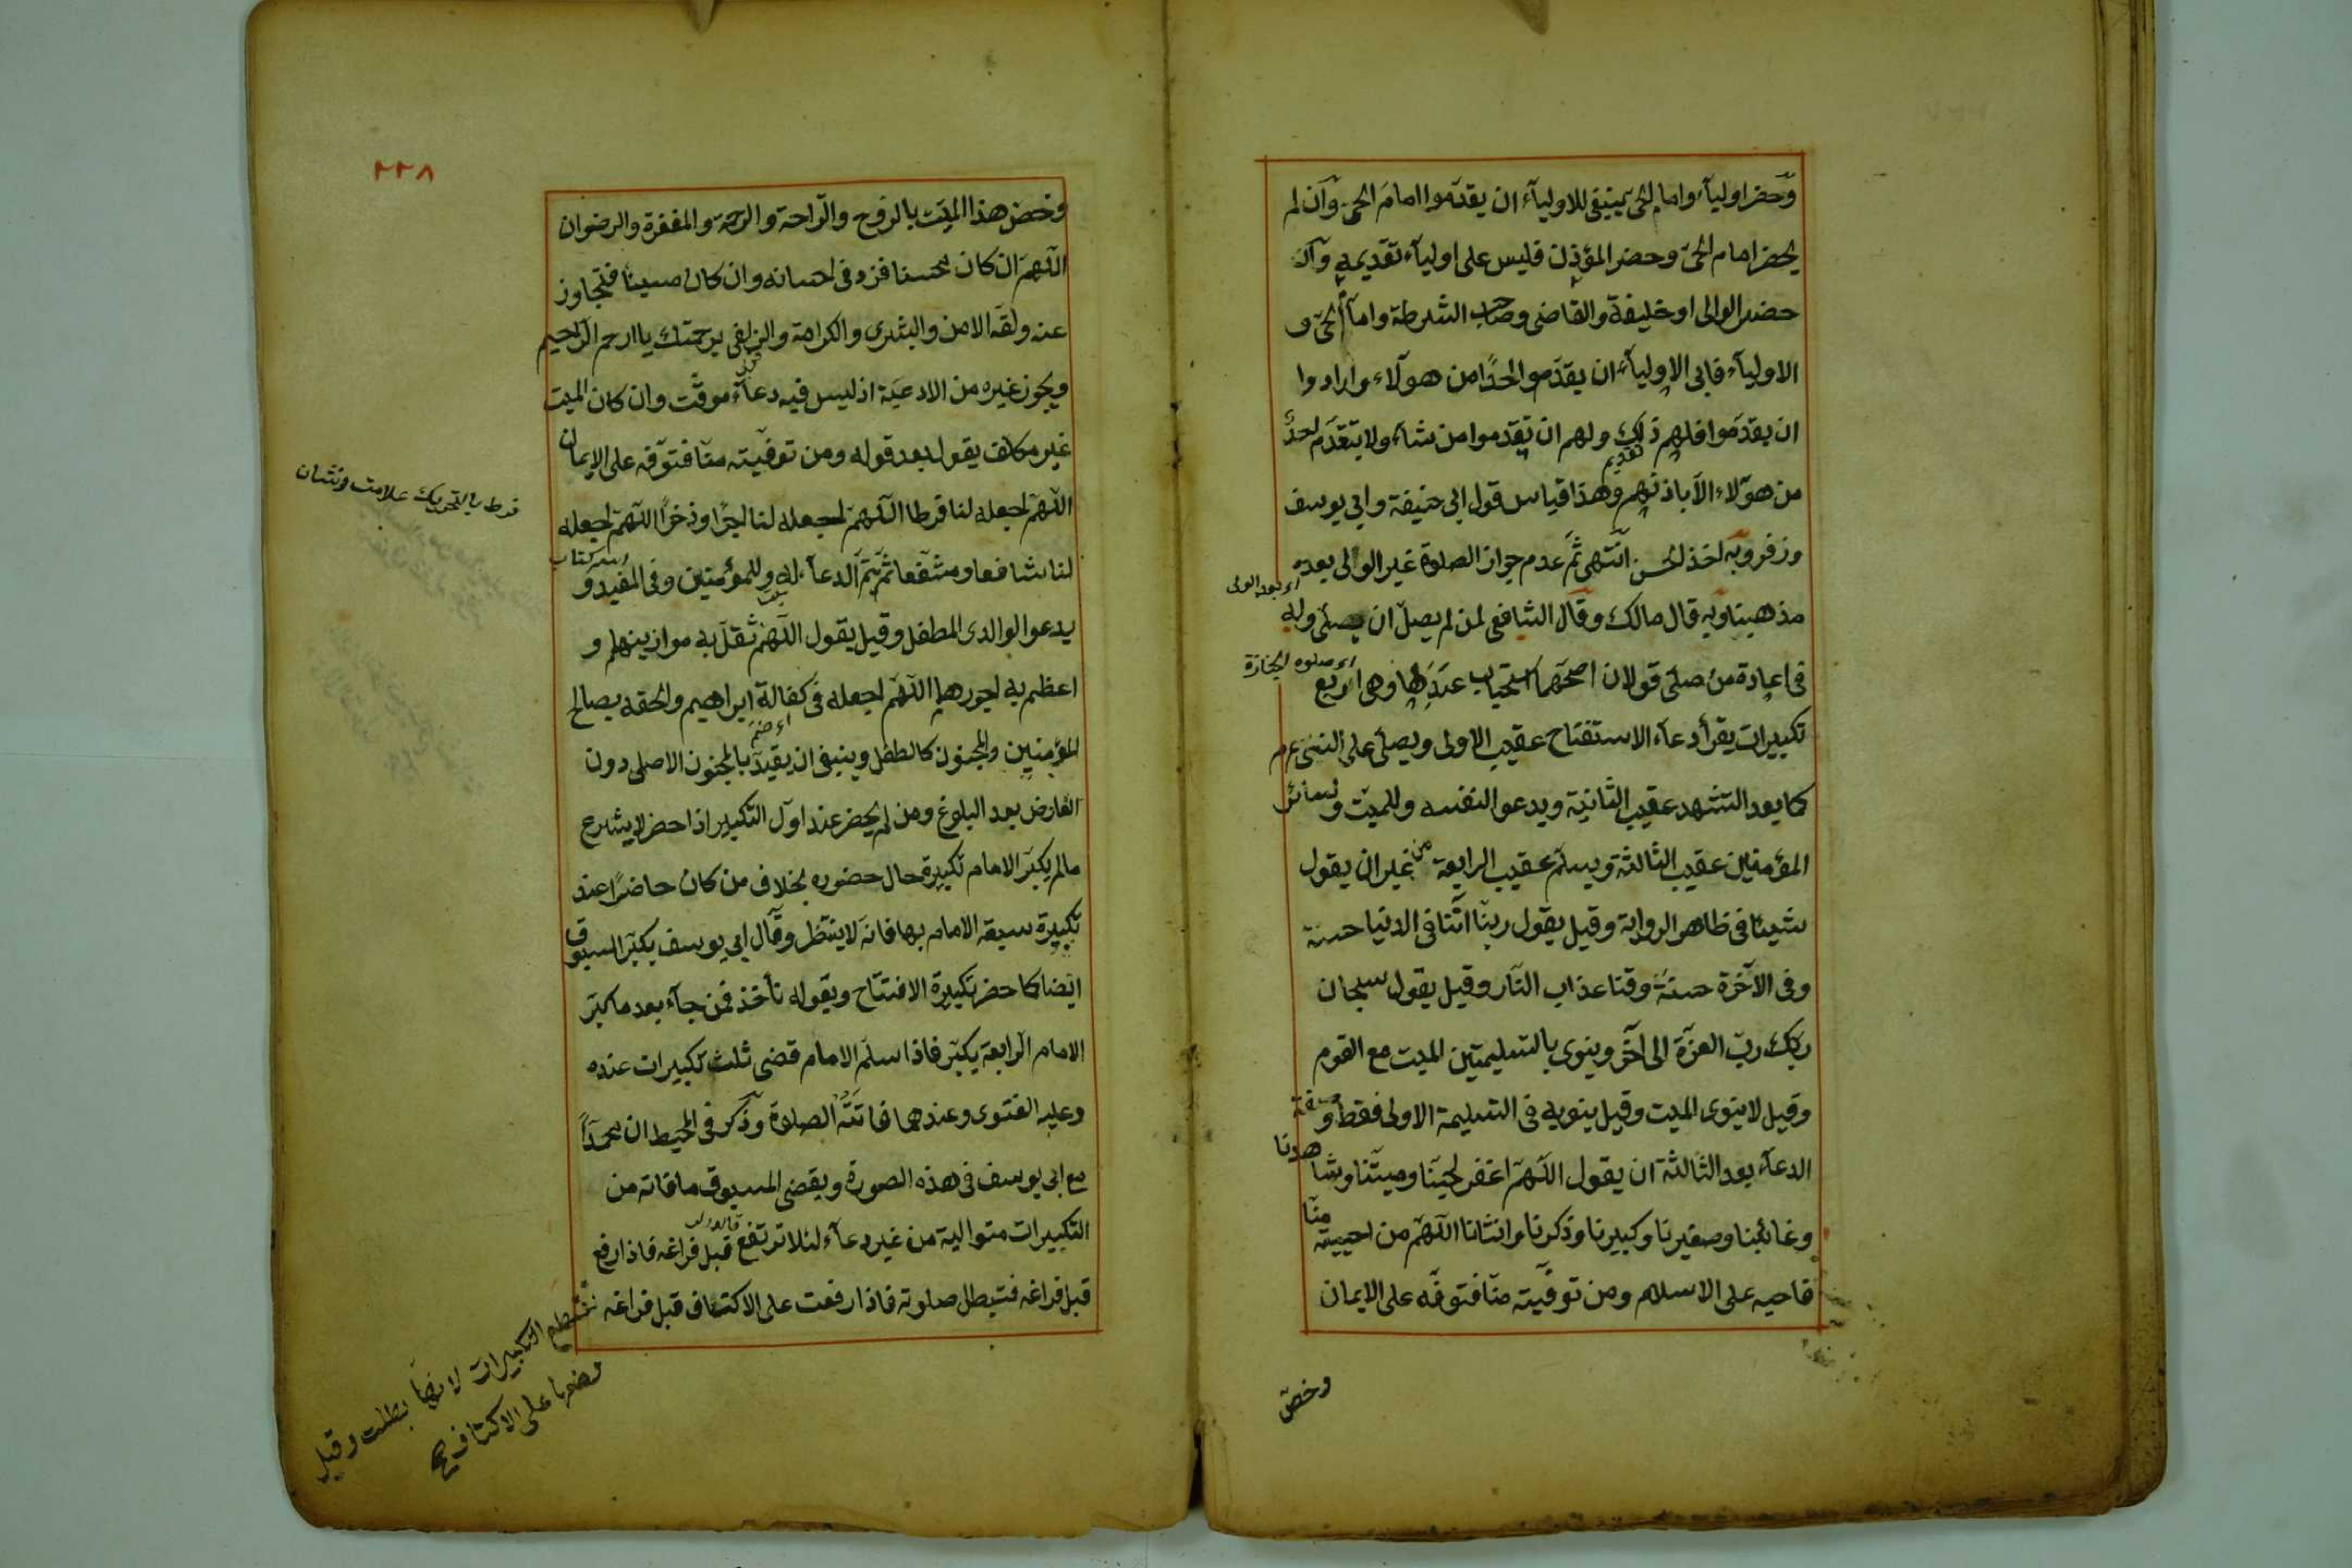 وحضر اولياء وامام الحى ينبغى للاولياء ان يقدموا امام الحى وان لم
يحضر امام الحى وحضر المؤذن فليس على اولياء تقديمه وان
حضر الوالى او خليفة والقاضى وصاحب الشرطة وامام الحى و
الاولياء فابى الاولياء ان يقدموا احدا من هولاء وارادوا
ان يقدموا فلهم ذلك ولهم ان يقدموا من شاء ولا يتقدم احد
من هولاء الا باذنهم وهذا قياس قول ابى حنيفة وابى يوسف
تقديم
وزفر وبه اخذ الحسن انتهى ثم عدم جواز الصلوة غير الوالى بعده
اى بعد الولى
مذهبنا وبه قال مالك وقال الشافعى لمن لم يصل ان يصلى وله
فى اعادة من صلى قولان اصحهما استحباب عندها وهى اربع
اى صلوه الجنازة
تكبيرات يقرأ دعاء الاستفتاح عقيب الاولى ويصلى على النبى عم
كما بعد التشهد عقيب الثانية ويدعو لنفسه وللميت ولسائر
المؤمنين عقيب الثالثة ويسلم عقيب الرابعة من غير ان يقول
شيئا فى ظاهر الرواية وقيل يقول ربنا اتنا فى الدنيا حسنة
وفى الآخرة حسنة وقنا عذاب النار وقيل يقول سبحان
ربك رب العزة الى اخر وينوى بالتسليمتين الميت مع القوم
وقيل لا ينوى الميت وقيل ينويه فى التسليمة الاولى فقط وصفة
الدعاء بعد الثالثة ان يقول اللهم اغفر لحينا وميتنا وشاهدنا
وغائبنا وصغيرنا وكبيرنا وذكرنا وانثانا اللهم من احييته منا
فاحيه على الاسلام ومن توفيته منا فتوفه على الايمان
وخص
٢٢٨
وخص هذا الميت بالروح والراحة والرحمة والمغفرة والرضوان
اللهم ان كان محسنا فزد فى احسانه وان كان مسيئا فتجاوز
عنه ولقه الامن والبشرى والكرامة والزلفى برحمتك يا ارحم الراحمين
ويجوز غيره من الادعية اذ ليس فيه دعاء موقت وان كان الميت
غير مكلف يقول بعد قوله ومن توفيته منا فتوفه على الايمان
اللهم اجعله لنا فرطا اللهم اجعله لنا اجرا وذخرا اللهم اجعله
فرط بالتحريك علامت ونشان
لنا شافعا ومشفعا ثم يتم الدعاء له وللمؤمنين وفى المفيد و
اسم كتاب
يدعو لوالدى الطفل وقيل يقول اللهم ثقل به موازينهما و
اعظم به اجورهما اللهم اجعله فى كفالة ابراهيم والحقه بصالح
المؤمنين والمجنون كالطفل وينبغى ان يقيد بالمجنون الاصلى دون
العارض بعد البلوغ ومن لم يحضر عند اول التكبير اذا حضر لا يشرع
مالم يكبر الامام تكبيرة حال حضوره بخلاف من كان حاضرا عند
تكبيرة سبقه الامام بها فانه لا ينتظر وقال ابى يوسف يكبر المسبوق
ايضا كما حضر تكبيرة الافتتاح وبقوله نأخذ فمن جاء بعد ما كبر
الامام الرابعة يكبر فاذا سلم الامام قضى ثلث تكبيرات عنده
وعليه الفتوى وعندهما فاتته الصلوة وذكر فى المحيط ان محمدا
مع ابى يوسف فى هذه الصورة ويقضى المسبوق ما فاته من
التكبيرات متوالية من غير دعاء لئلا ترتفع قبل فراغه فاذا رفع
قبل فراغه فتبطل صلوته فاذا رفعت على الاكتاف قبل فراغه
تنقطع التكبيرات لانها بطلت وقيل
وضعها على الاكتاف